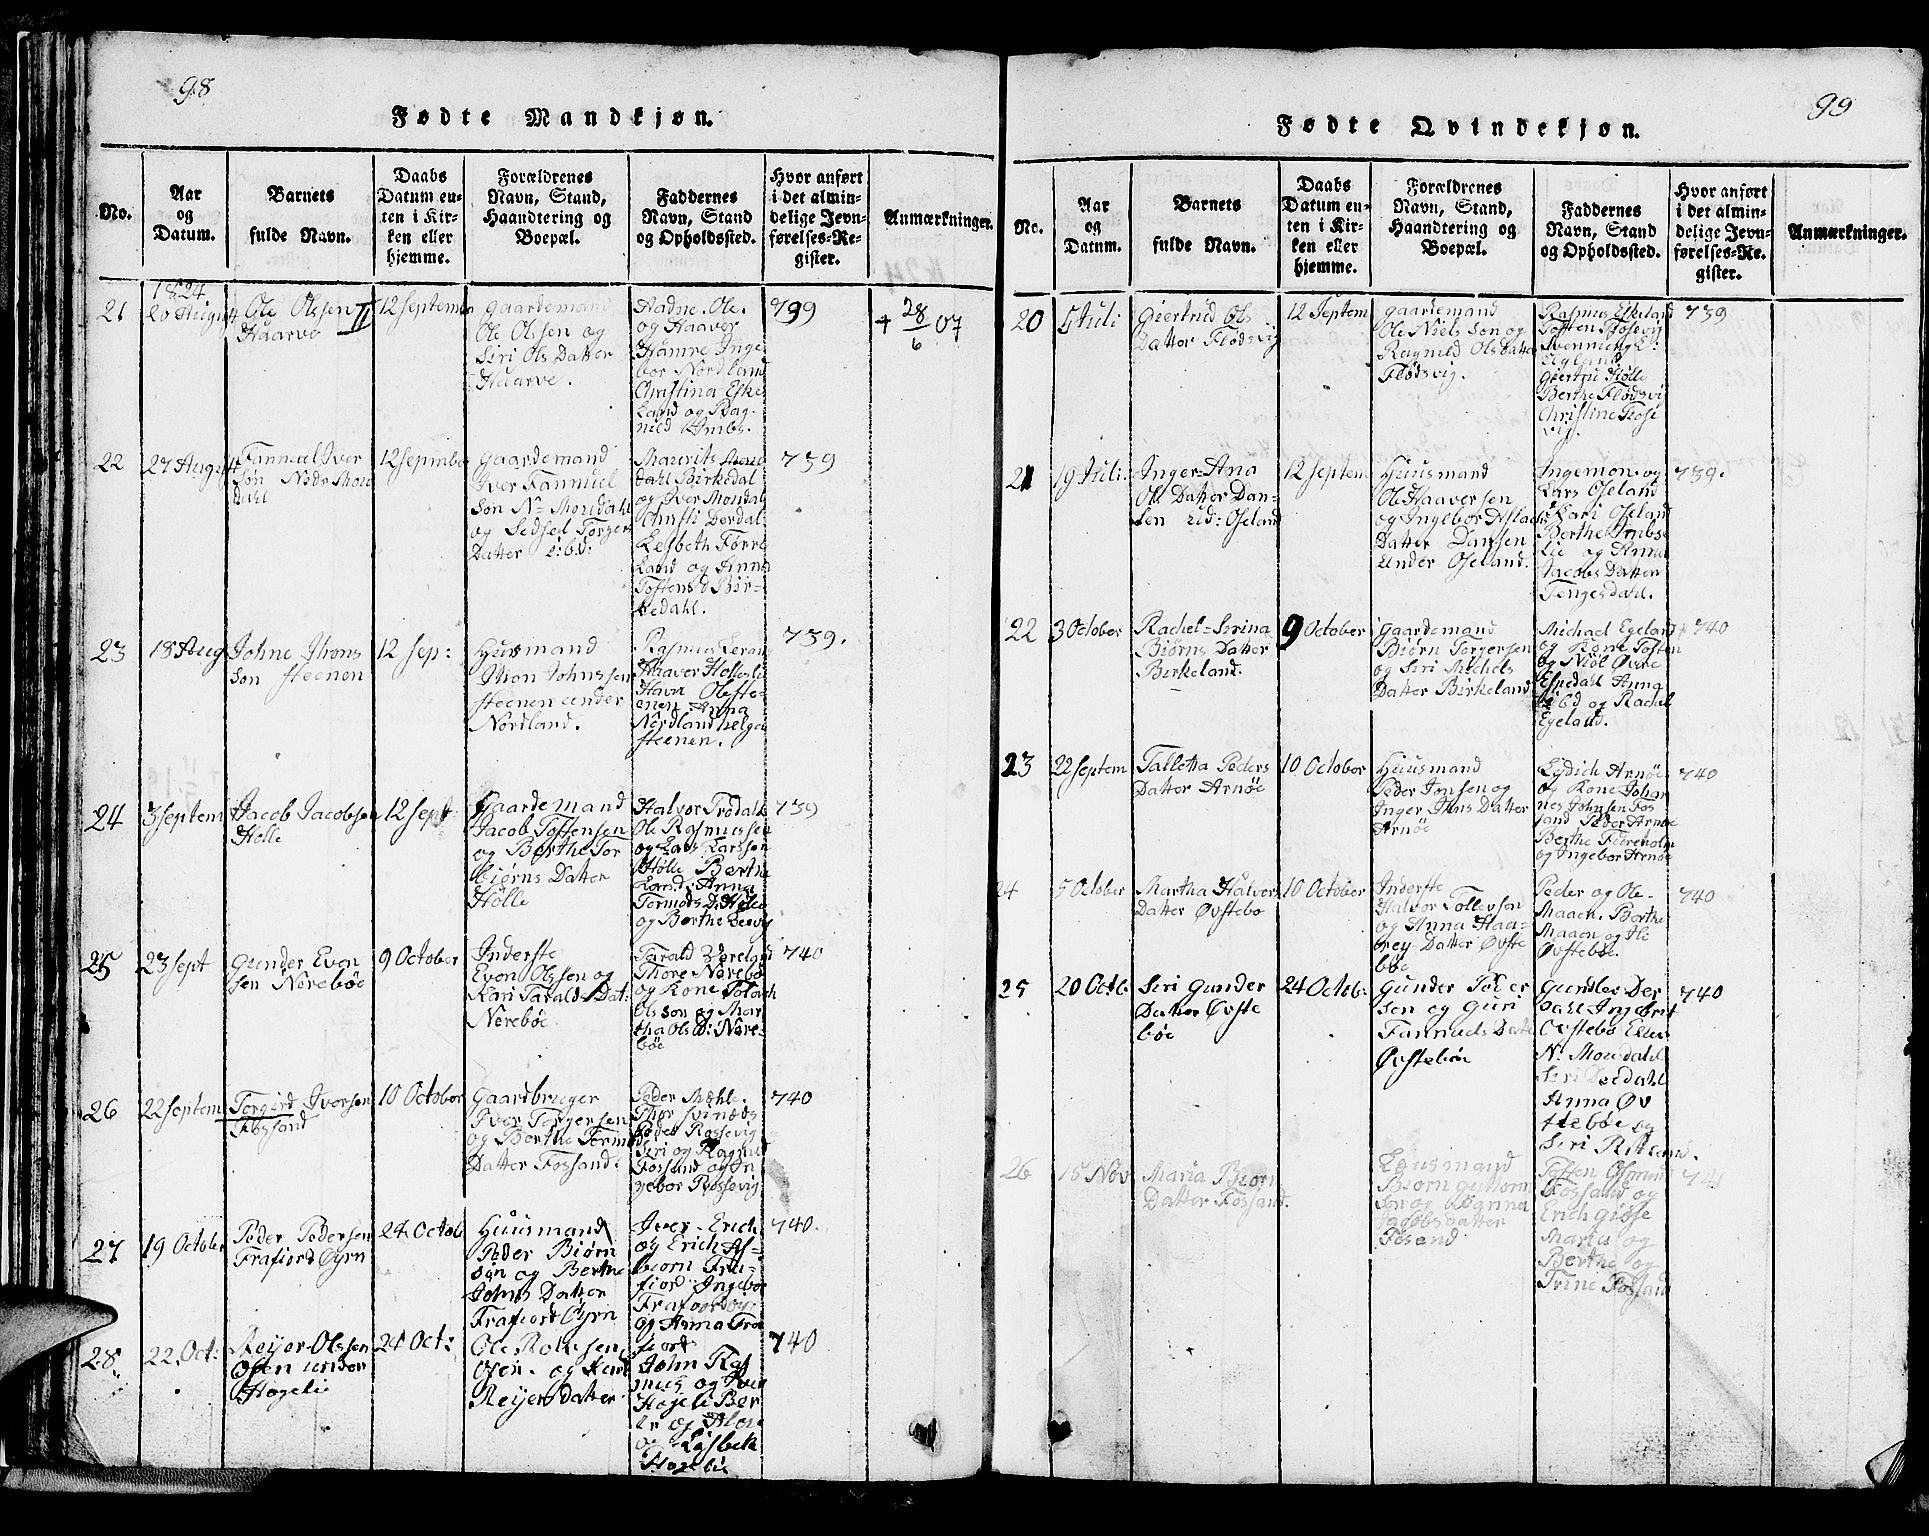 98
Fødte Mandkjøn.
No.
Aar
og
Datum.
Barnets
fulde Navn.
Daabs
Datum en-
ten i Kir-
ken eller
hjemme.
Forældrenes
Navn, Stand,
Haandtering og
Boepæl.
Faddernes
Navn, Stand
og Opholdssted.
Hvor anført
i det almin-
delige Jevn-
førelses-Re-
gister.
Anmærkninger.
21
1824
20 August
Ole Olsen II
Haarvo
12 Septemer
Gaardemand
Ole Olsen og
Siri Ols Datter
Haarve.
Aadne. Ole.
og Haaver
Hamre Inge
bor Nordland
Christina Eske
Land og Rag-
nild Ombs.
739
† 28/6 07
22
27 August
Fanuel Iver
søn Nedr Mon
dahl
12 Sepmber
Gaardemand
Iver Fannuel
søn Nr Mondahl
og Sedsel Torger
Datter i:b:d:
Maurits
dahl Birkedal
og Iver Mondal
Christi Dordal
Lisbeth Førre
Land og Anna
Tostens D Bir-
kedahl.
739
23
18 Aug
Johne Thons
søn Steenen
12 Sep:
Huusmand
Thon Johnssen
Steenen under
Nordland.
Rasmus Lerang
Haaver Hollesli
Havn Olsste-
enen Anna
Nordland helga
steenen.
739.
24
3 Septem
Jacob Jacobsen
Hølle
12 Sept
Gaardemand
Jacob Tostensen
og Berthe Tor
biørns Datter
Hølle
Halvor Tredalh
Ole Rasmussen
og Lars Larssøn
Hølle Berthe
Land: Anna
Tormods D. Hølle
og Berthe Lervig
739
25
23 Sept
Gunder Even
sen Nerebøe
9 October
Inderste
Even Olssen og
Kari Taralds Dat:
Nerebøe.
Tarald
Thore Nerebø
og Kone
Olsson og Mar
tha Ols D: Nere-
bøe
740
26
22 Septem
Torgerd Iversen
Fossand
10 October
Gaardbruger
Iver Torgersen
og Berthe Tormods
Datter Fossand.
Peder Mæhle.
Thor svinæds
Peder Rossevig
Siri og Ragnild
Fossand og In
gebor Rossevig
740
27
19 October
Peder Pedersen
Frafiord Øyrn
24 Octob
Huusmand
Peder Biørn
søn og Berthe
Johns Datter
Frafiord Øyrn
Iver. Erich
og Erich As-
biorn Fra-
fiord. Ingebor
Frafiord
og Anna Fra
fiord
740.
28.
22. Oct:
Reijer Olssen
Osen under
Hogelie
24 Oct:
Ole Rolvsen
Osen. og Kari
Reijers Datter.
John Ras
mus og Iver
Hogeli Ber
te og
og Lisbeth
Hogelie
740
99
Fødte Qvindekjøn.
No.
Aar
og
Datum.
Barnets
fulde Navn.
Daabs
Datum en-
ten i Kir-
ken eller
hjemme.
Forældrenes
Navn, Stand,
Haandtering og
Boepæl.
Faddernes
Navn, Stand
og Opholdssted.
Hvor anført
i det almin-
delige Jevn-
førelses-Re-
gister.
Anmærkninger.
20
5 Juli
Giertrud Ols
Datter Flødsvig
12 Septem
Gaardemand
Ole Nielsson og
Ragnild Ols Datter
Flødsvig.
Rasmus Eskeland
Tosten Flosevig
Svenning E:
Egland
Giertru Hølle
Berthe Flødsvig
Christine Flose
vig.
739
21
19 Juli.
Inger-Ana
Ols Datter Dan-
sen ud: Oseland
12 Septem
Huusmand
Ole Haaversen
og Ingebor Aslachs
Datter Dansen
under Oseland.
Ingemon. og
Lars Oseland
Kari Oseland
Berthe Ombse
lie og Anna
Jacobs Datter
Tengesdahl.
739.
22
3 October
Rachel-Serina
Biørns Datter
Birkeland.
9 October
Gaardemand
Biørn Torgersen
og Siri Michels
Datter Birkeland
Michael Egeland
og Kone Tosten
og Niel Øvre
Espedahl Anna
ibd og Rachel
Egeland.
740
23
22 Septem
Talletta Peders
Datter Arnøe
10 October
Huusmand
Peder Jonsen og
Inger Jens Datter
Arnøe
Lydich Arnøe
og Kone Johan
nes Johnsen Fos
sand Peder Arnøe
Berthe Fedreholm
og Ingebor Arnøe
740
24
5 October
Martha Halvors
Datter Øvstebø
10 October
Inderste
Halvor Tollevsen
og Anna Haa-
vrey Datter Øvste
bøe
Peder og Ole
Maaen. Berthe
Maaen og Ili
Øvstebøe.
740
25
20 Octb
Siri Gunder
Datter Øvste
bøe
24 Octob:
Gunder Peder
sen og Guri
Fannuels Datt
Øvstebøe
Gundles Der
dahl Ingebrit
Øvstebø Ellen
N. Mondahl
Siri Dordahl
Anna Øv
stebøe og
Siri Ritland.
740
26
15 Nov
Maria Biørn
Datter Fossand.
Huusmand
Biørn Guttorm
søn og Hanna
Jacobsdatter
Fosand
Tosten Osmun
Fossand og
Erich Giøse
Maria og
Berthe og
Trine Fossand
741